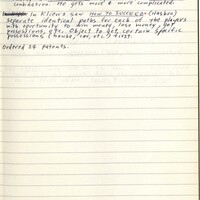 combination. He gets most & more complicated.
In Klien's saw How to Succeed (Hasbro)
Separate identical paths for each of the players
with oportunity to win money, lose money, get
possessions, etc. Object to get certain specific
possessions (house, car, etc.) first.
Ordered 28 patents.